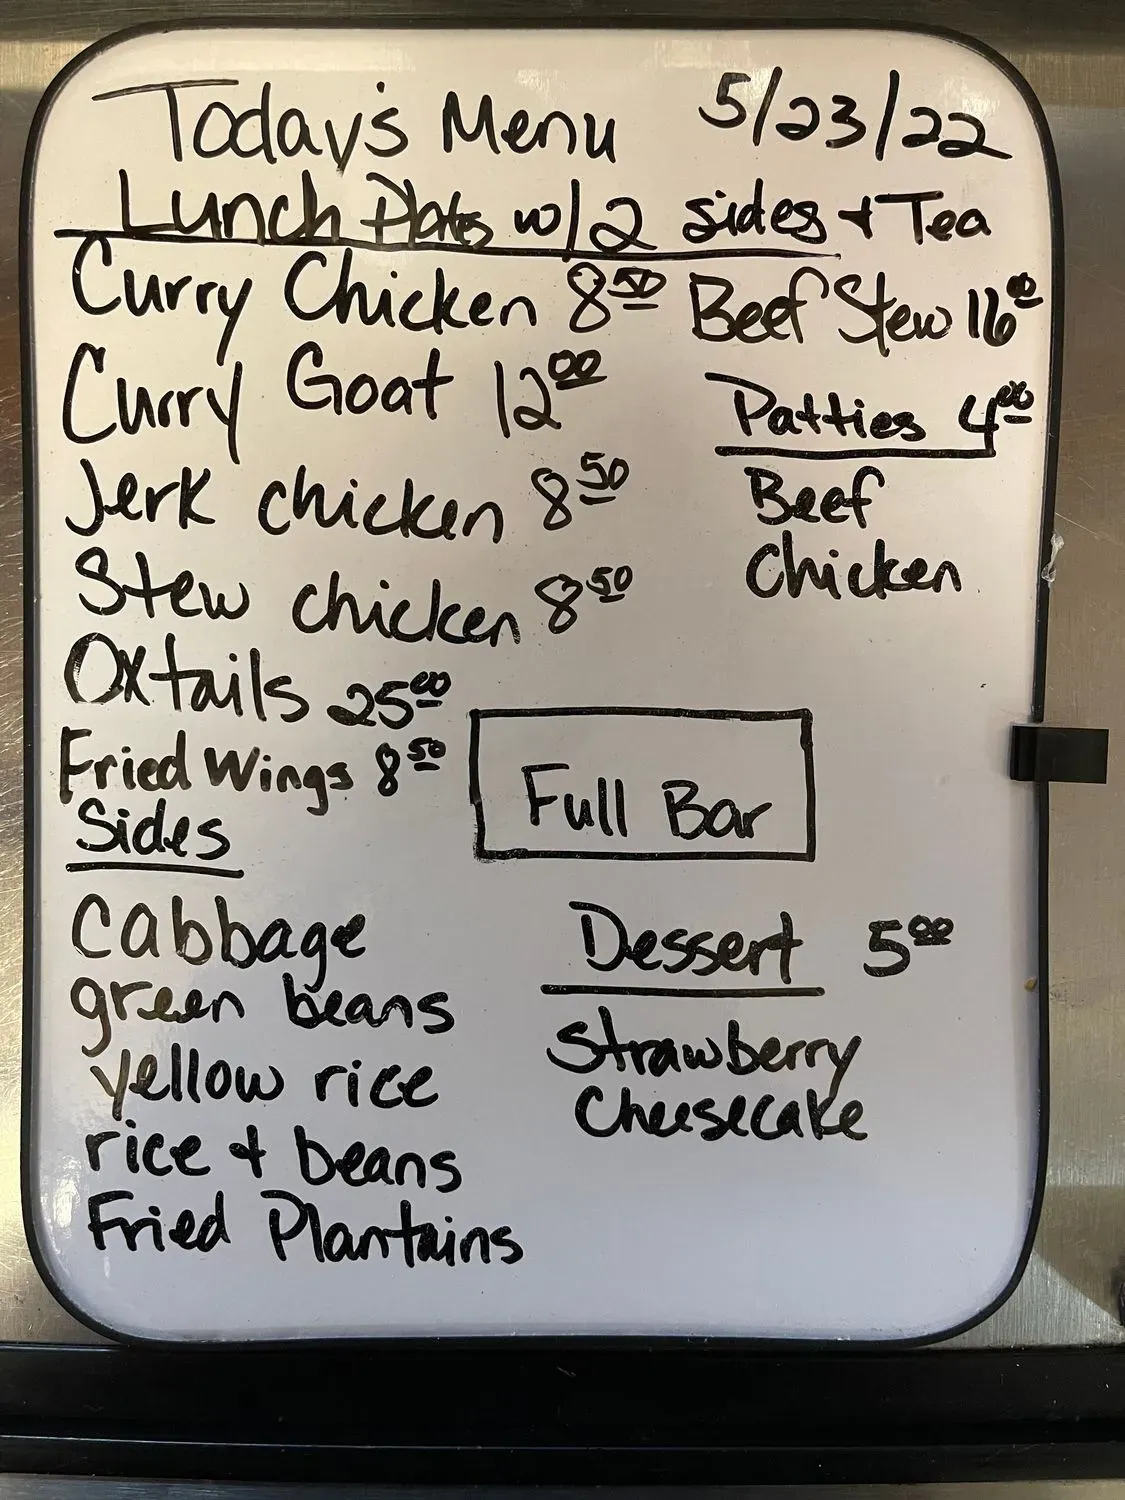 Today's Menu 5/23/22
Lunch Plates w/2 sides + Tea
Curry Chicken 8.50
Curry Goat 12.00
Jerk chicken 8.50
Stew chicken 8.50
Oxtails 25.00
Fried Wings 8.50
Beef Stew 16.00
Patties 4.00
Beef
Chicken
Full Bar
Sides
cabbage
green beans
yellow rice
rice + beans
Fried Plantains
Dessert 5.00
Strawberry
Cheesecake